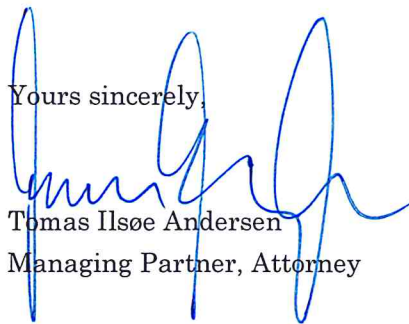 Yours sincerely,
Tomas Ilsøe Andersen
Managing Partner, Attorney